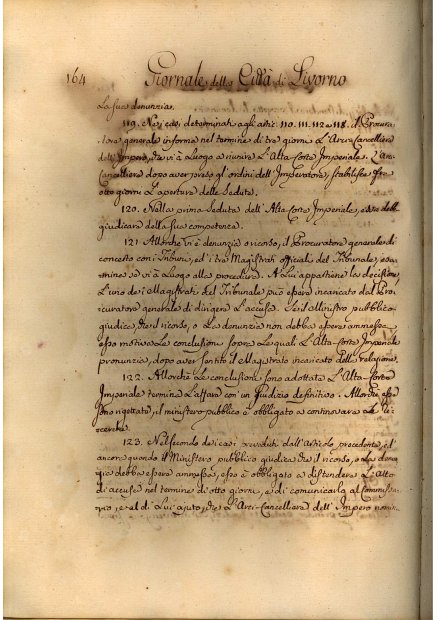 164 Giornale della Città di Livorno
La sua denunzia.
119. Nei casi determinati agli artic. 110. 111. 112. e 118. il Procura-
tore generale informa nel termine di tre giorni L'Arci-Cancelliere
dell'Impero, se vi à Luogo a riunire L'Alta-Corte Imperiale. L'Arci
Cancelliere dopo aver preso gli ordini dell'Imperatore, stabilisce fra
otto giorni L'apertura delle Sedute.
120. Nella prima Seduta dell'Alta-Corte Imperiale, essa deve
giudicare della sua competenza.
121. Allorchè vi è denunzia o ricorso, il Procuratore generale di
concerto con i Tribuni, ed i tre Magistrati officiali del Tribunale, esa-
minano se vi à Luogo alla procedura. A Lui appartiene la decisione,
L'uno de i Magistrati del Tribunale può essere incaricato dal Pro-
curatore generale di dirigere L'accusa. Se il Ministro pubblico
giudica, che il ricorso, o La denunzia non debba essere ammessa,
esso motiva Le conclusioni sopra Le quali L'Alta-Corte Imperiale
pronunzia, dopo aver sentito il Magistrato incaricato della relazione.
122. Allorchè Le conclusioni sono adottate L'Alta-Corte
Imperiale termina L'affare con un giudizio definitivo. Allorchè esse
sono rigettate, il ministro pubblico è obbligato a continovare Le ri-
cerche.
123. Nel secondo dei casi preveduti dall'Articolo precedente, ed
ancora quando il Ministero pubblico giudica che il ricorso, o La denun-
zia debba essere ammessa, esso è obbligato a distendere L'Atto
di accusa nel termine di otto giorni, e di comunicarlo al Commissa-
rio, e al di Lui ajuto, che L'Arci-Cancelliere dell'Impero nomi-